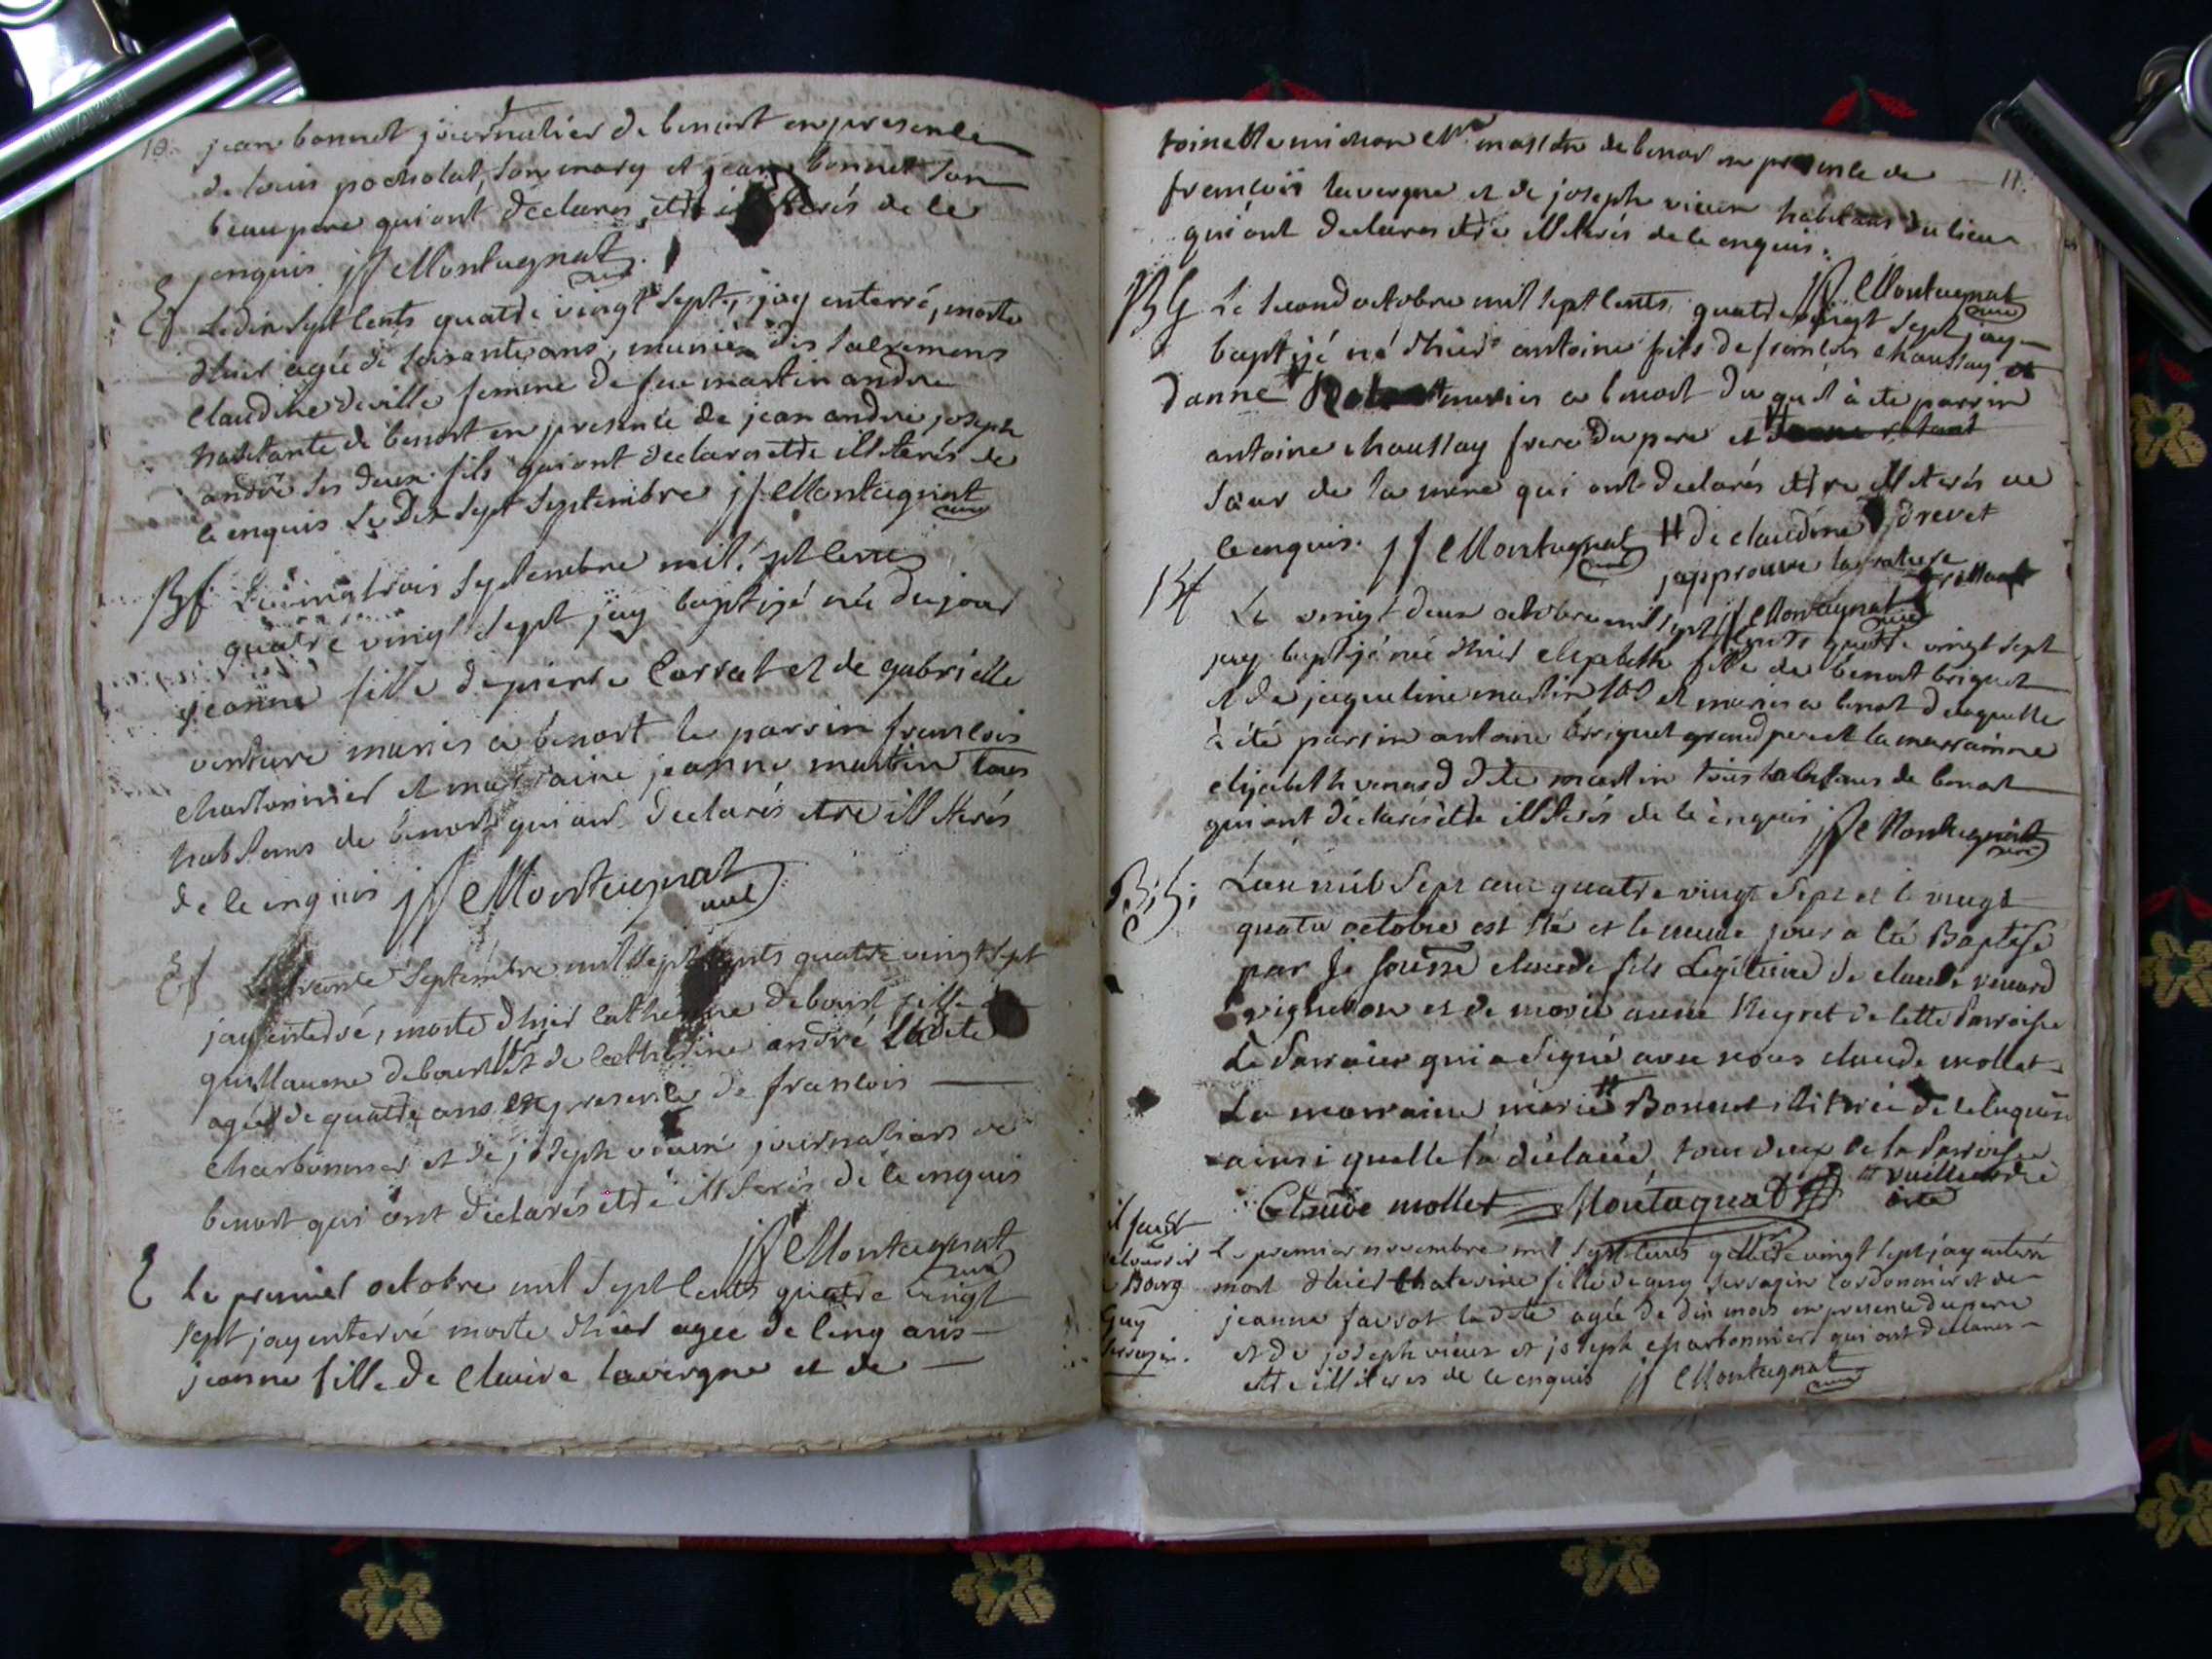 10.
jean bonnet journalier de benost en presence
de louis pocholat, son mary et jean bonnet son
beau pere qui ont déclarés etre illiterés de ce
enquis jf Montagnat curé
Ef Le dix sept cents quatre vingt sept, jay enterré, morte
dhier agée de soixante ans, munie des sacremens
claudine deville femme de feu martin andré
habitante de benost en presence de jean andré joseph
andré ses deux fils qui ont declarés etre illiterés de
ce enquis Le Dix sept septembre jf Montagnat curé
Bf Le vingt trois septembre mil sept cents
quatre vingt sept jay baptizé née du jour
jeanne fille de pierre Corsat et de gabrielle
venture mariés a benost le parrin francois
charbonnier et marraine jeanne martin tous
habitans de benost qui ont declarés etre illiterés
de ce enquis jf Montagnat curé
Ef Le trente Septembre mil sept cents quatre vingt sept
jay enterré, morte dhier catherine debourt fille de
guillaume debourt et de catherine andré Ladite
agée de quatre ans en presence de francois
charbonnier et de joseph vieux journaliers de
benost qui ont déclarés etre illiterés de ce enquis
jf Montagnat curé
E Le premier octobre mil sept cents quatre vingt
sept jay enterré morte dhier agée de cinq ans
jeanne fille de claude lavergne et de
11.
toinette michon de benost en presence de
francois lavergne et de joseph vieux habitans du lieu
qui ont declarés etre illiterés de ce enquis.
jf Montagnat curé
BG Le second octobre mil sept cents quatre vingt sept jay
baptizé né dhier antoine fils de francois chaussay et
danne mariés a benost duquel à été parrin
antoine chaussay frere du pere et
soeur de la mere qui ont declarés etre illiterés de
ce enquis. jf Montagnat curé # de claudine drevet
japprouve la rature
jf Montagnat curé
Bf Le vingt deux octobre mil sept cents quatre vingt sept
jay baptizé née dhier elizabeth fille de benost briquet
et de jaqueline martin et mariés a benost de laquelle
à été parrin antoine briquet grand pere et la marraine
elizabeth venard dite martin tous habitans de benost
qui ont déclarés etre illiterés de ce enquis jf Montagnat curé
L'an mil sept cent quatre vingt sept et le vingt
quatre octobre est né et le meme jour a été Baptisé
par claude fils Legitime de claude venard
vigneron et de marie anne Neyret de cette Parroisse
Le Parrain qui a signé avec nous claude mollet
La marraine marie # Bonnet illiterée de ce enquise
ainsi quelle la déclaré, tous deux de la Parroisse
Claude mollet Montagnat
il faut
Bourg
Guy
Le premier novembre mil sept cents quatre vingt sept jay enterré
mort dhier Chaterine fille de guy sarrazin cordonnier et de
jeanne favrot ladite agée de dix mois en presence du pere
et de joseph vieux et joseph charbonnier qui ont declarés
etre illiterés de ce enquis jf Montagnat curé